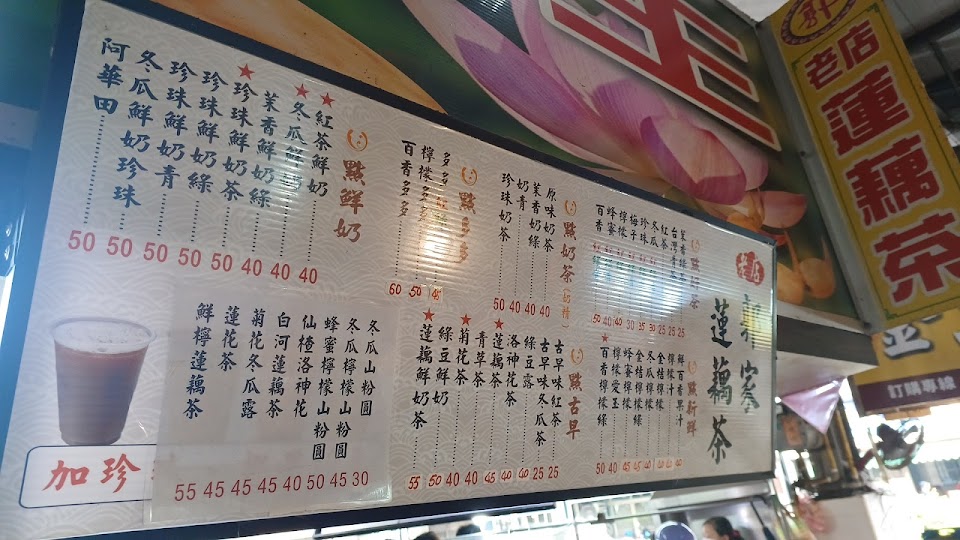 老店
蓮藕茶
訂購專線
蓮藕茶
紅茶
冬瓜茶
25 25 25
點新鮮
鮮百香果汁
檸檬汁
金桔檸檬
冬瓜檸檬
金桔檸檬綠
蜂蜜檸檬
檸檬愛玉
百香檸檬綠
點奶茶(奶精)
原味奶茶
茉香奶綠
奶青
珍珠奶茶
50 40 40 40
點古早
古早味紅茶
古早味冬瓜茶
綠豆露
洛神花茶
蓮藕茶
青草茶
菊花茶
綠豆鮮奶
蓮藕鮮奶茶
55 50 40 40 45 40 40 25 25
點多多
檸檬多多
百香多多
60 50 45
點鮮奶
紅茶鮮奶
冬瓜鮮奶
茉香鮮奶綠
珍珠鮮奶茶
珍珠鮮奶綠
珍珠鮮奶青
冬瓜鮮奶珍珠
阿華田
50 50 50 50 50 40 40 40
冬瓜山粉圓
冬瓜檸檬山粉圓
蜂蜜檸檬山粉圓
仙楂洛神花
白河蓮藕茶
菊花冬瓜露
蓮花茶
鮮檸蓮藕茶
55 45 45 45 40 50 45 30
加珍